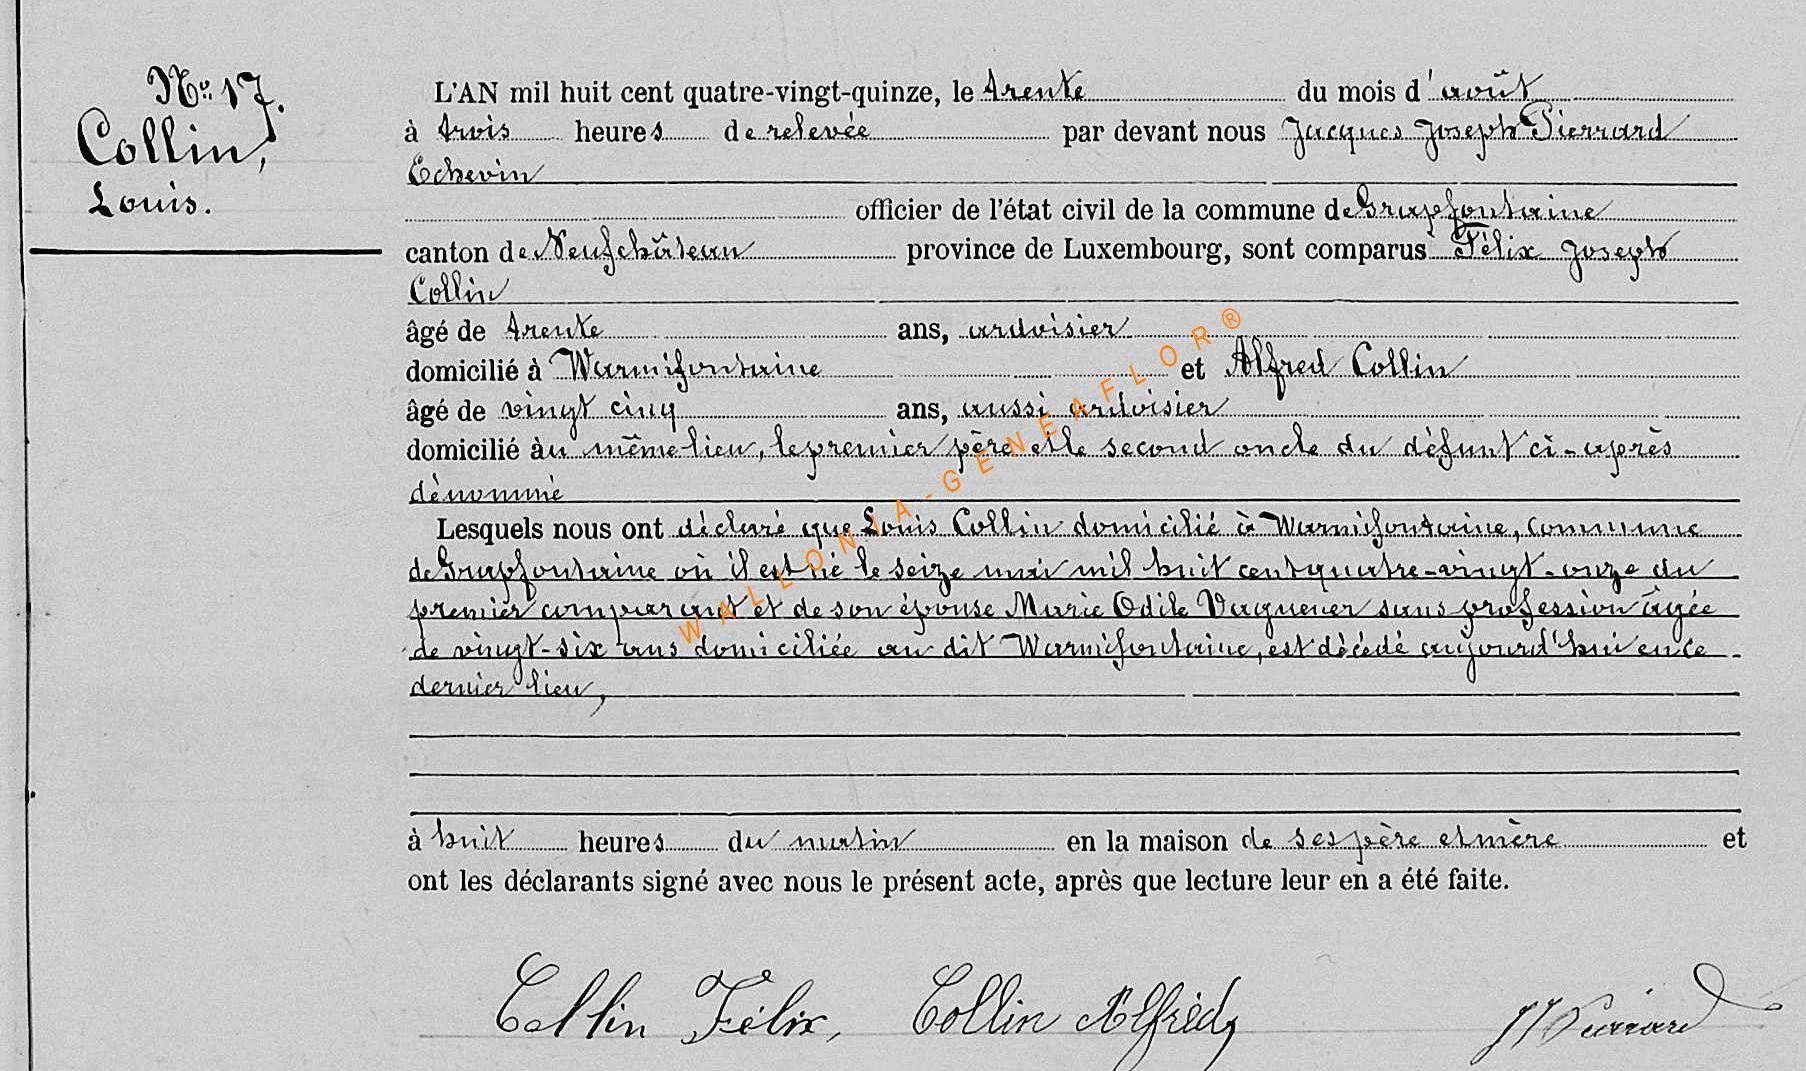 No. 17.
Collin,
Louis.
L'AN mil huit cent quatre-vingt-quinze, le trente du mois d'août
à trois heures de relevée par devant nous Jacques Joseph Pierrard
Echevin
officier de l'état civil de la commune de Grapfontaine
canton de Neufchâteau province de Luxembourg, sont comparus Félix Joseph
Collin
âgé de trente ans, ardoisier
domicilié à Warmifontaine et Alfred Collin
âgé de vingt cinq ans, aussi ardoisier
domicilié àu même lieu, le premier père et le second oncle du défunt ci-après
dénommé
Lesquels nous ont déclaré que Louis Collin domicilié à Warmifontaine, commune
de Grapfontaine où il est né le seize mai mil huit cent quatre-vingt-onze du
premier comparant et de son épouse Marie Odile Vaguener sans profession âgée
de vingt-six ans domiciliée au dit Warmifontaine, est décédé aujourd'hui en ce
dernier lieu,
à huit heures du matin en la maison de ses père et mère et
ont les déclarants signé avec nous le présent acte, après que lecture leur en a été faite.
Collin Félix, Collin Alfred, JJ Pierrard
WALLONIA-GENEAFLOR®